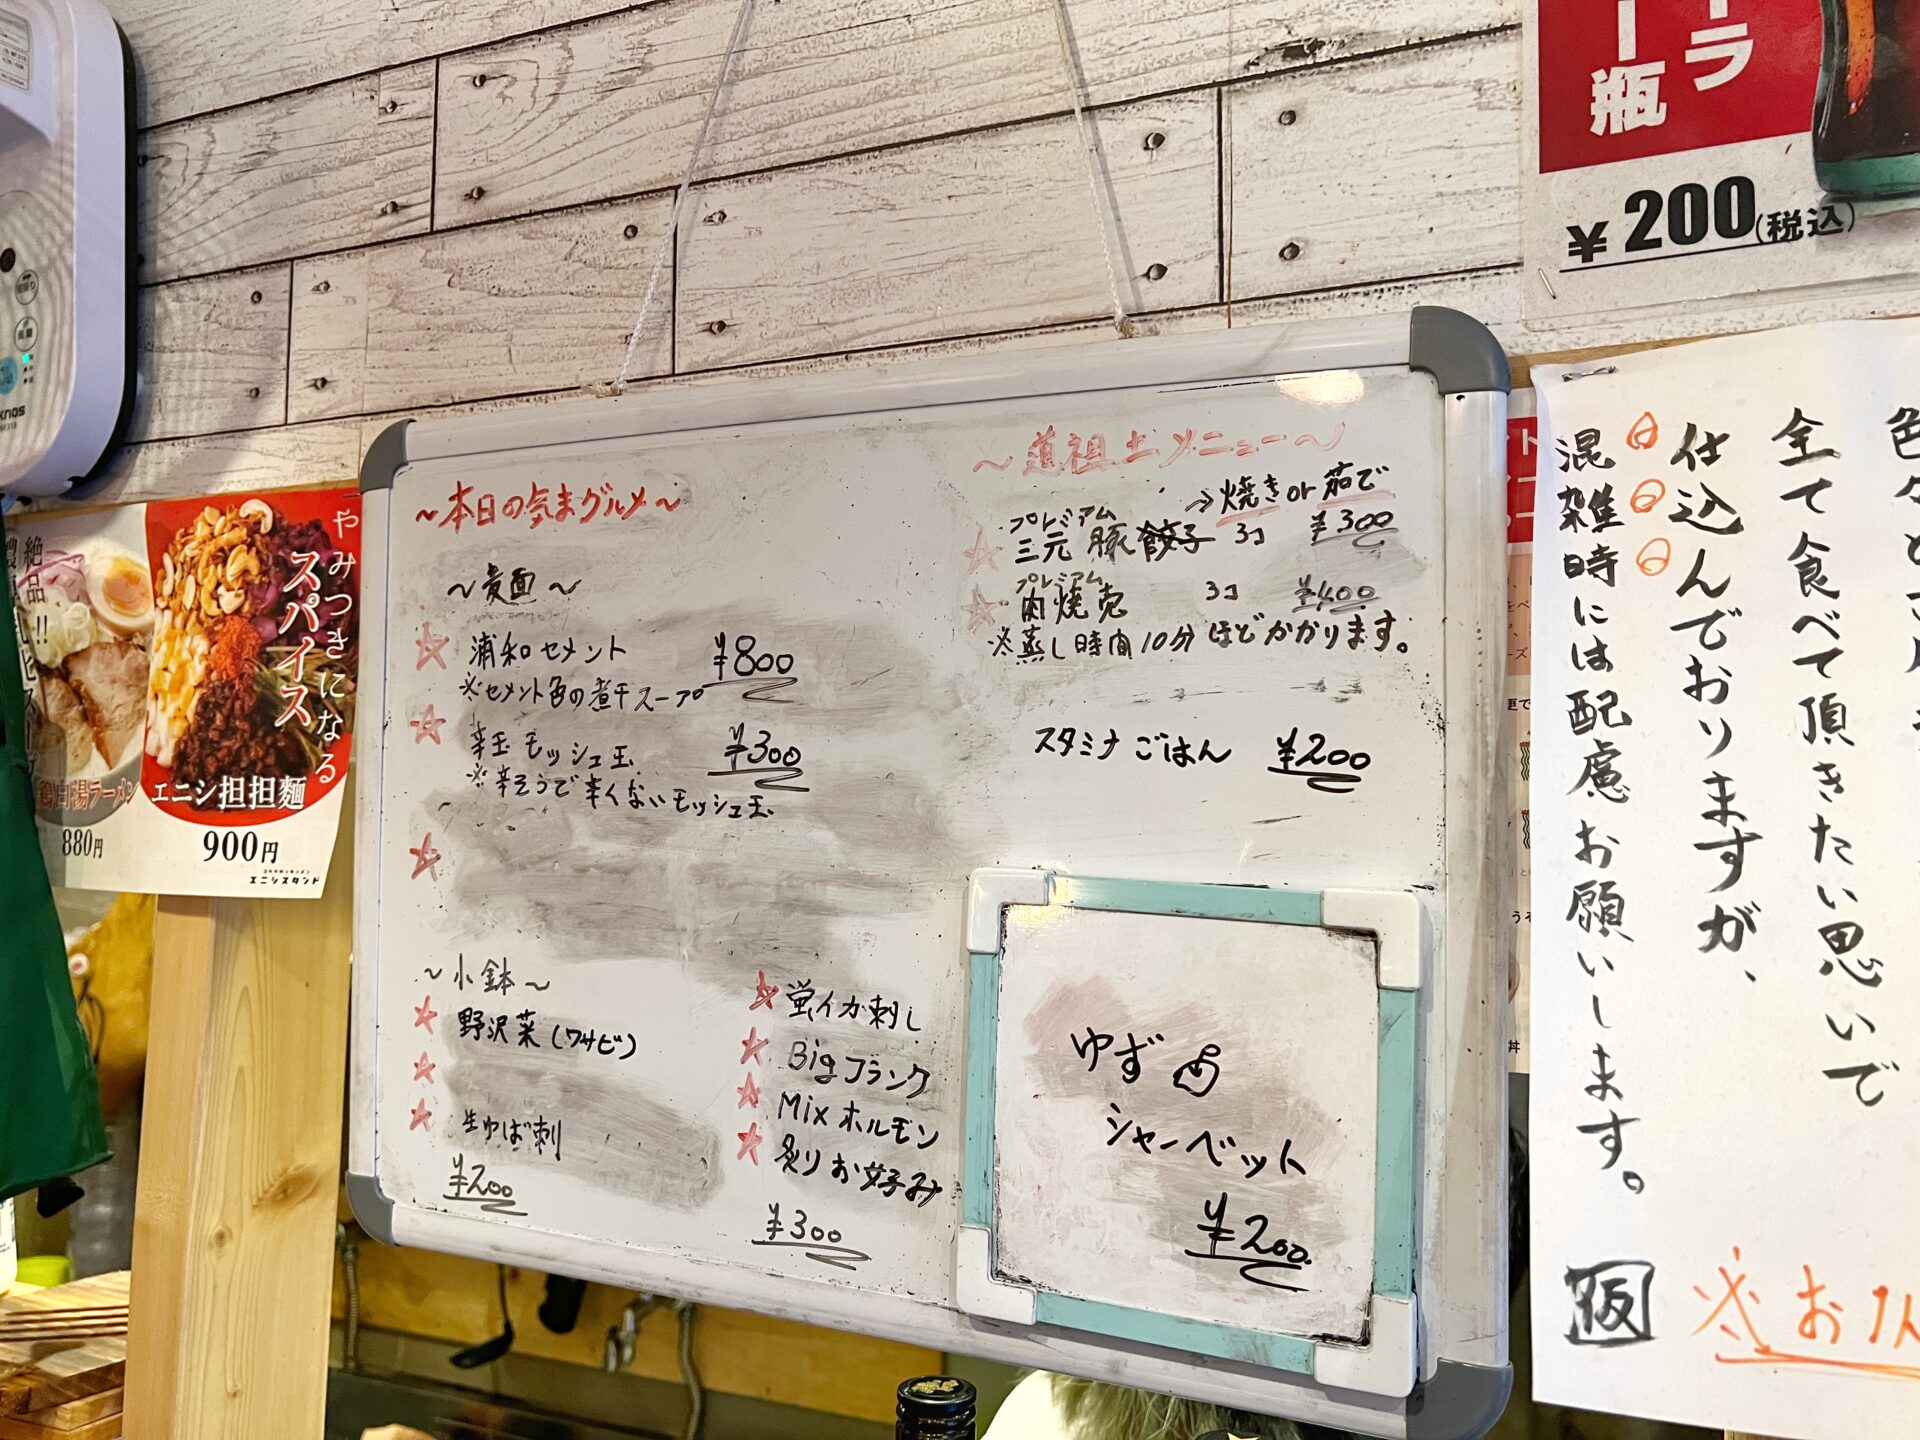 ~本日の気まグルメ~
~麦面~
浦和セメント ¥800
※セメント色の煮干スープ
辛玉 モッシュ玉 ¥300
※辛そうで辛くないモッシュ玉
~小鉢~
野沢菜(ワサビ)
生ゆば刺
¥200
蛍イカ刺し
Bigフランク
Mixホルモン
炙りお好み
¥300
~道祖土メニュー~
→焼き or 茹で
プレミアム
三元豚餃子 3コ ¥300
プレミアム
肉焼売 3コ ¥400
※蒸し時間10分ほどかかります。
スタミナごはん ¥200
ゆず
シャーベット
¥200
ーラ
ー瓶
¥200(税込)
全て食べて頂きたい思いで
仕込んでおりますが、
混雑時には配慮お願いします。
仮
※お1人
やみつきになる
スパイス
エニシ担担麺
900円
エニシスタンド
絶品!!
鶏白湯ラーメン
880円